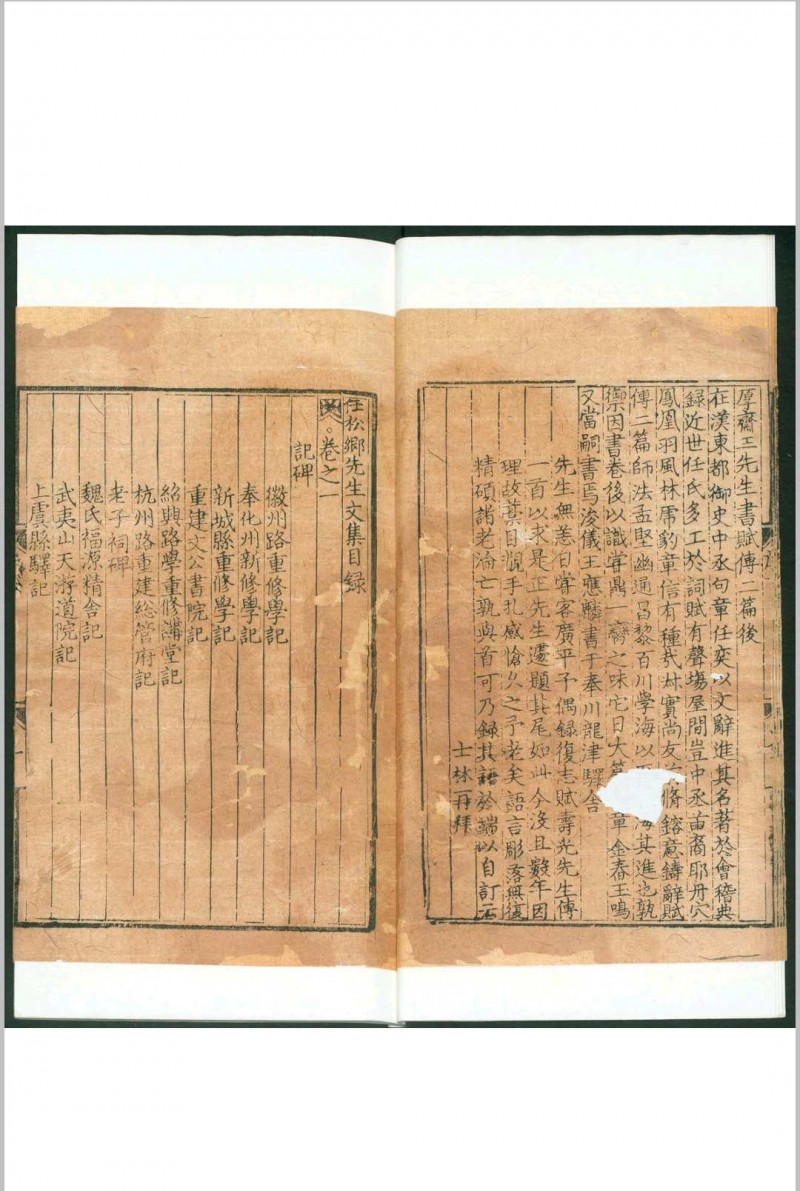 厚齋王先生書賦傳二篇後
在漢東都御史中丞句章任奕以文辭進其名著於會稽典
錄近世任氏多工於詞賦有聲塲屋間豈中丞苗裔耶丹穴
鳳凰羽風林虎豹章信有種哉叔實尚友 脩鎔意鑄辭賦
傳二篇師法孟堅幽通昌黎百川學海以 海其進也孰
禦因書卷後以識甞鼎一臠之味它日大篇 章金舂玉鳴
又當嗣書焉浚儀王應麟書于奉川龍津驛舍
先生無恙日甞客廣平予偶録復志賦壽光先生傳
一首以求是正先生遽題其尾如此今沒且數年因
理故藁目觀手扎感愴久之予老矣語言彫落無復
精碩諸老淪亡孰與首可乃録其語於端以自訂云
士林再拜
任松鄉先生文集目録
卷之一
記碑
徽州路重修學記
奉化州新修學記
新城縣重修學記
重建文公書院記
紹興路學重修講堂記
杭州路重建総管府記
老子祠碑
魏氏福源精舍記
武夷山天游道院記
上虞縣驛記